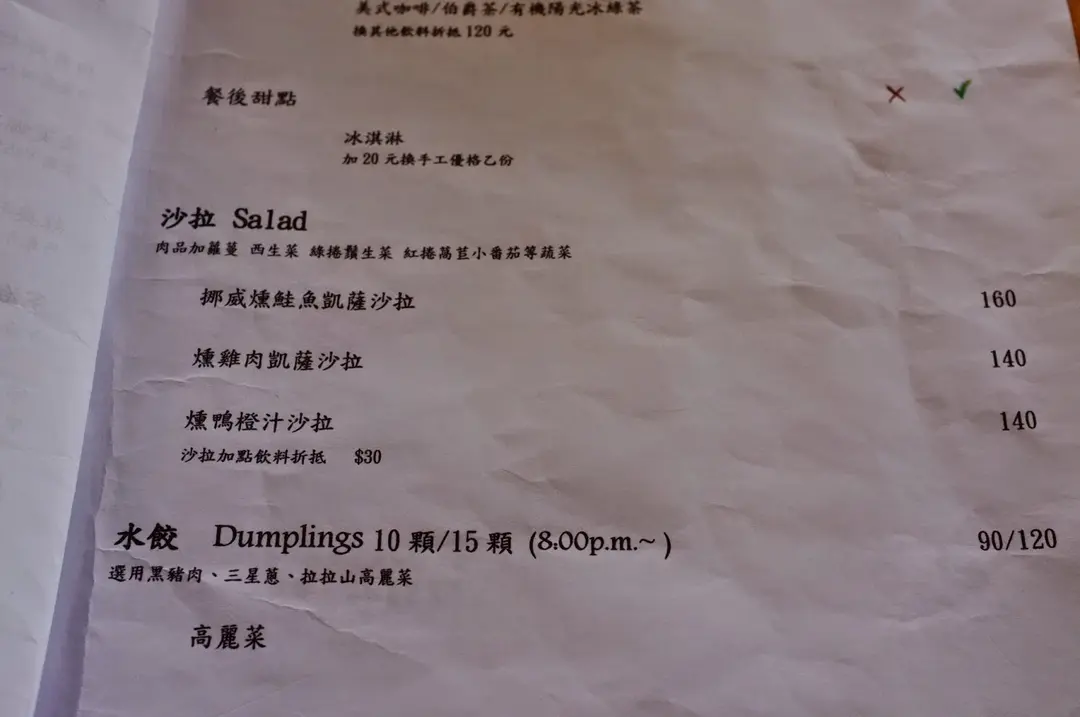 美式咖啡/伯爵茶/有機陽光冰綠茶
換其他飲料折抵 120 元
餐後甜點
冰淇淋
加 20 元換手工優格乙份
沙拉 Salad
肉品加蘿蔓 西生菜 綠捲鬚生菜 紅捲萵苣小番茄等蔬菜
挪威燻鮭魚凱薩沙拉 160
燻雞肉凱薩沙拉 140
燻鴨橙汁沙拉 140
沙拉加點飲料折抵 $30
水餃 Dumplings 10 顆/15 顆 (8:00p.m.~ ) 90/120
選用黑豬肉、三星蔥、拉拉山高麗菜
高麗菜